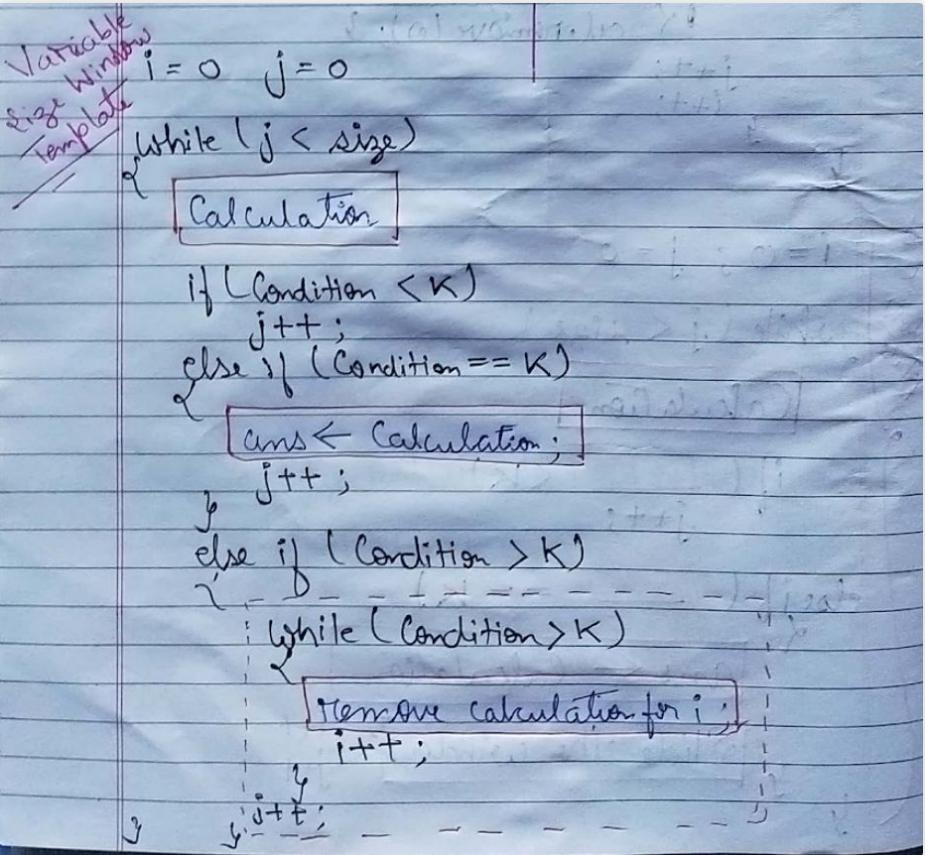 Variable
Size Window
Template
i = 0 j = 0
while (j < size)
{
Calculation
if (Condition < K)
j++ ;
else if (Condition == K)
{
ans ← Calculation ;
j++ ;
}
else if (Condition > K)
{
while (Condition > K)
{
remove calculation for i ;
i++ ;
}
j++ ;
}
}